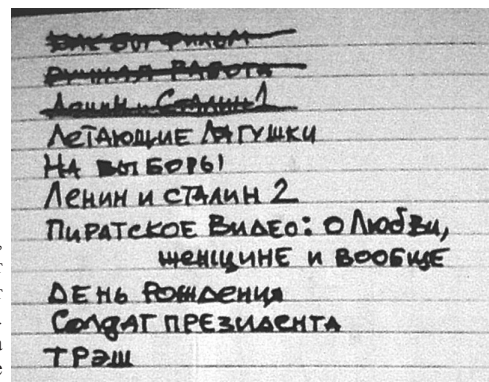 РУЧНАЯ РАБОТА
Ленин и Сталин 1
ЛЕТАЮЩИЕ ЛЯГУШКИ
НА ВЫБОРЫ
Ленин и СТАЛИН 2
ПИРАТСКОЕ ВИДЕО: О ЛЮБВИ,
ЖЕНЩИНЕ И ВООБЩЕ
ДЕНЬ РОЖДЕНИЯ
СОЛДАТ ПРЕЗИДЕНТА
ТРЭШ